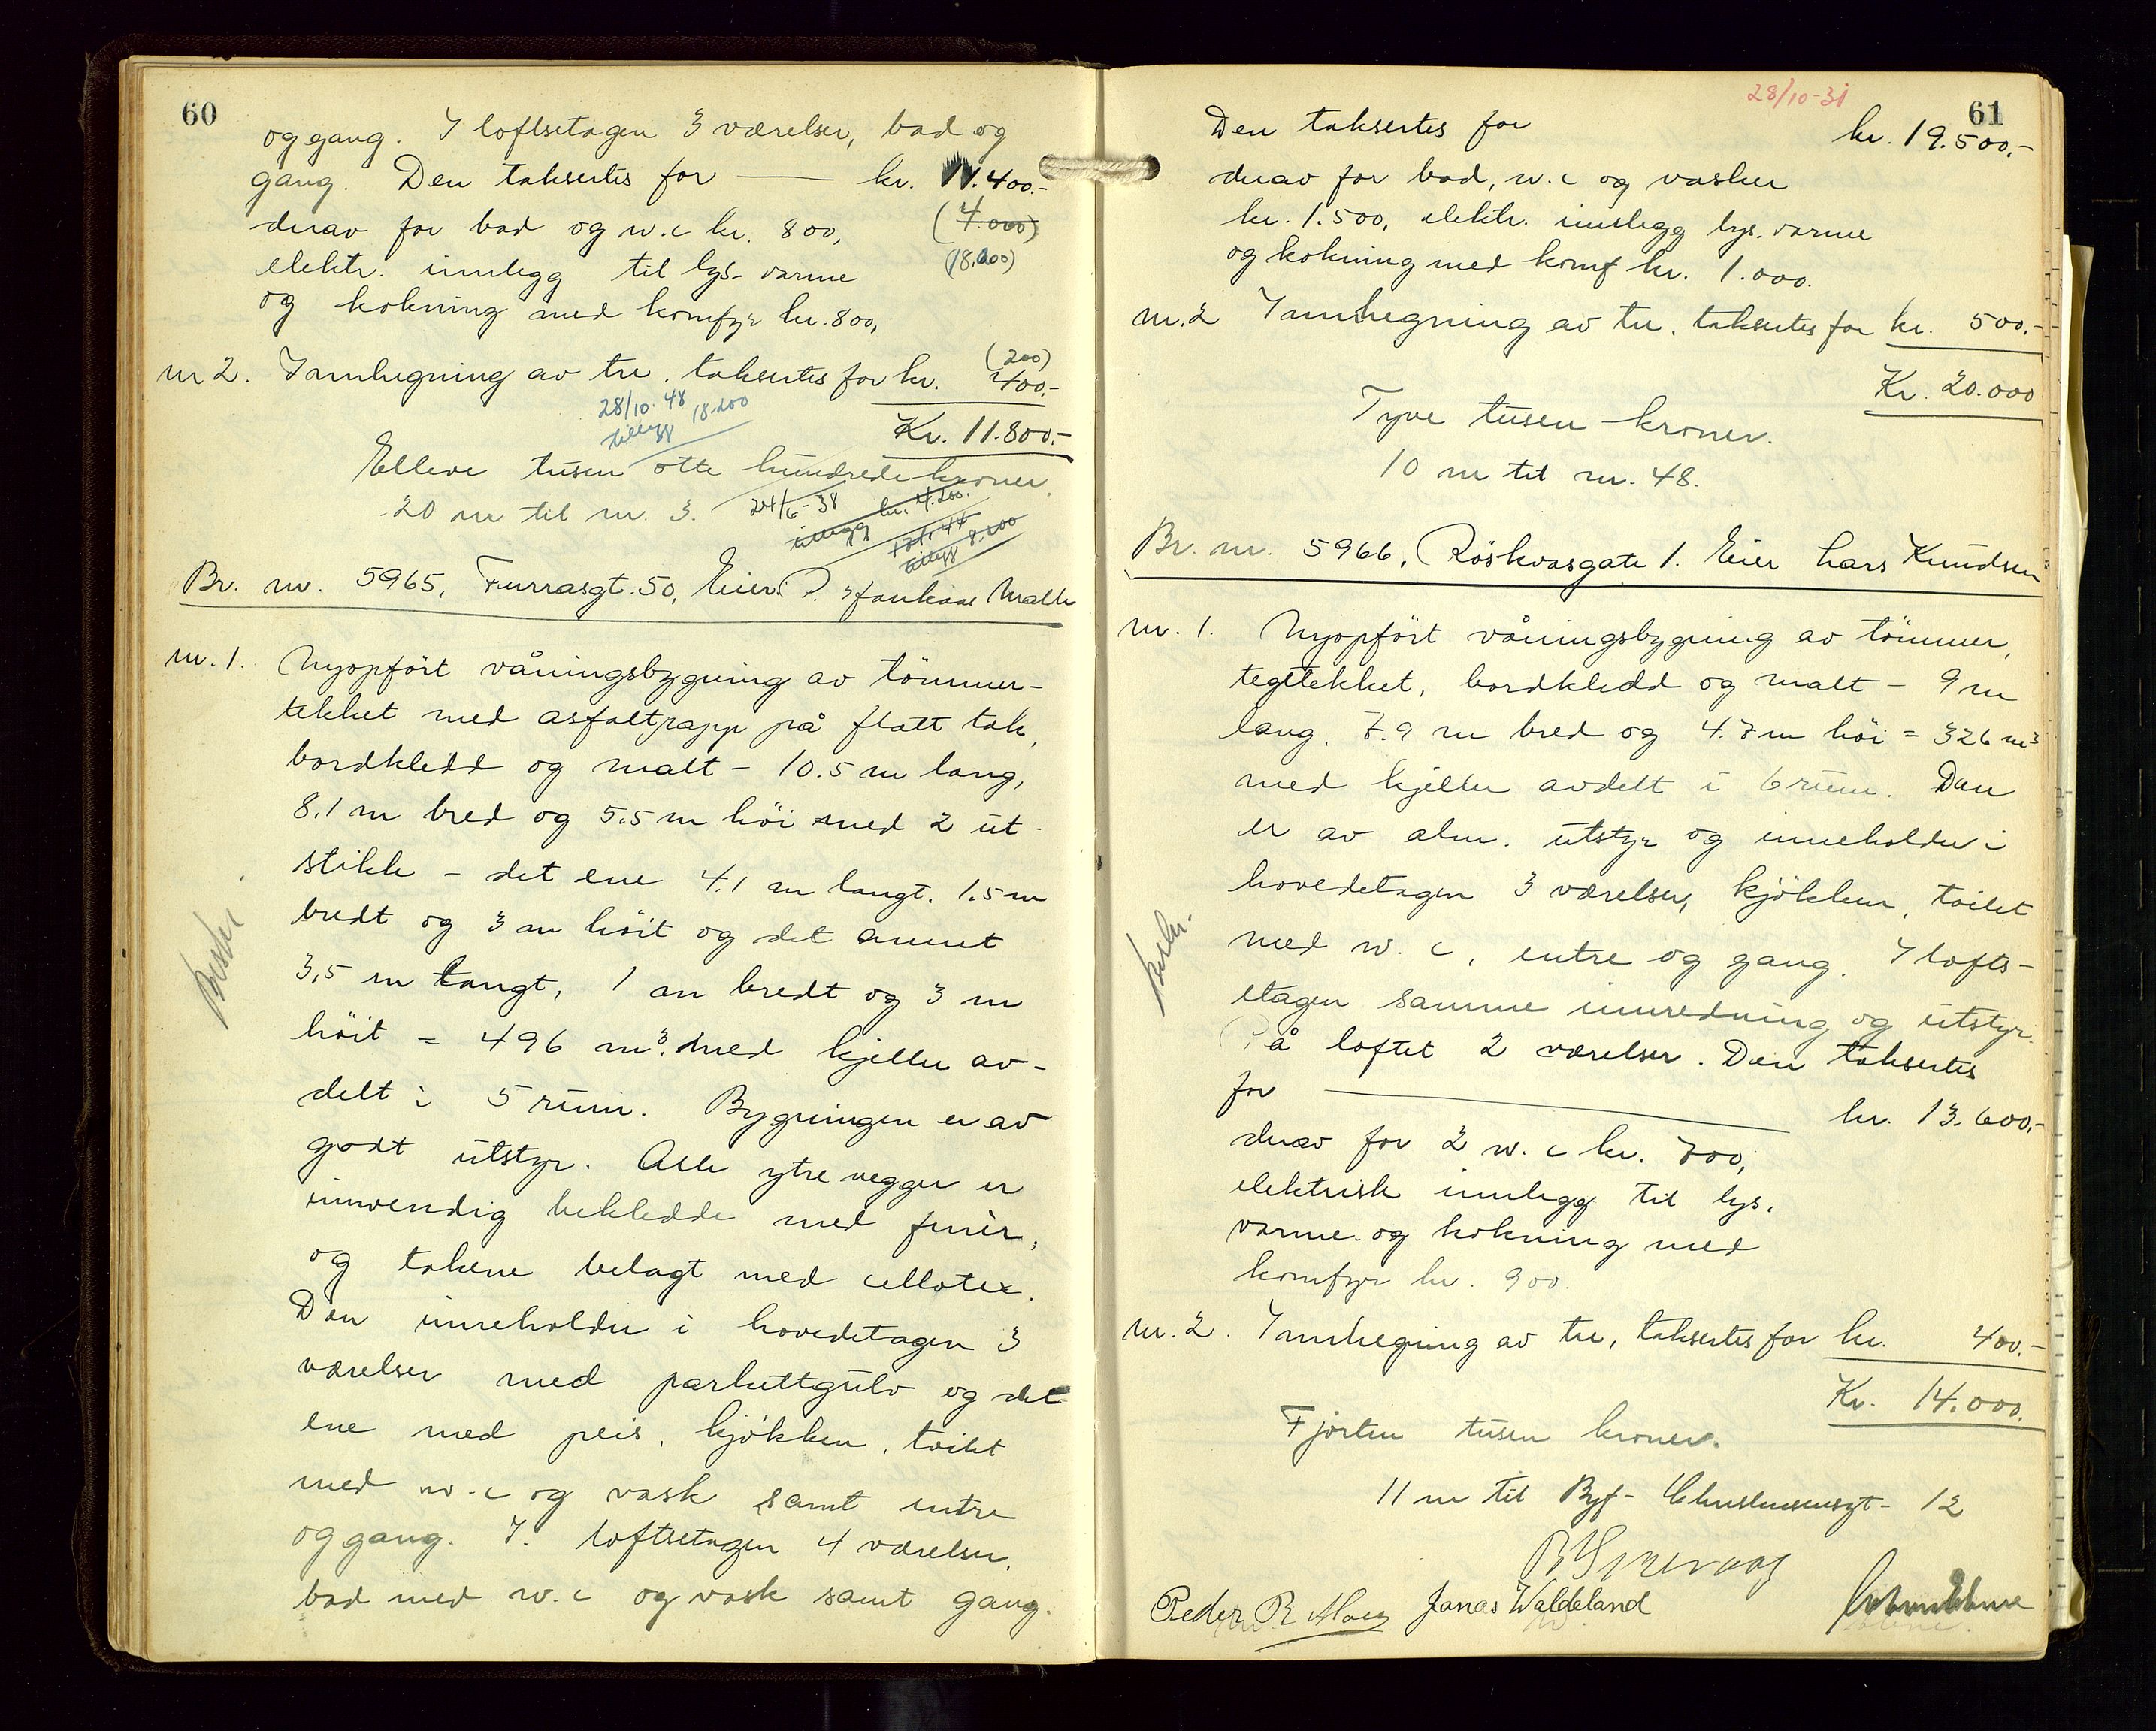 60
og gang. I loftsetagen 3 værelser, bad og
gang. Den taksertes for — kr. 11.400.-
derav for bad og w.c kr. 800, (4.000)
elektr. innlegg til lys- varme (18.000)
og kokning med komfyr kr. 800,
(200)
nr 2. Innhegning av tre. taksertes for kr. 400.-
28/10-48 18.200
tillegg
Kr. 11.800.-
Elleve tusen otte hundrede kroner.
20 m til nr. 3. 24/6-38
tillegg kr. 4.200.
tillegg 8.200
Br. nr. 5965, Furrasgt. 50, Eier: P. Malle
nr. 1. Nyopført våningsbygning av tömmer-
tekket med asfaltpapp på flatt tak,
bordkledd og malt - 10.5 m lang,
8.1 m bred og 5.5 m höi med 2 ut-
stikk - det ene 4.1 m langt. 1.5 m
bredt og 3 m höit og det annet
3,5 m langt, 1 m bredt og 3 m
höit = 496 m³. med kjeller av-
delt i 5 rum. Bygningen er av
godt utstyr. Alle ytre vegger er
innvendig bekledde med finèr,
og takene belagt med cellotex.
Den inneholder i hovedetagen 3
værelser med parkettgulv og det
ene med peis, kjökken, toilet
med w.c og vask samt entre
og gang. I. loftsetagen 4 værelser,
bad med w.c og vask samt gang.
Beskr.
28/10-31
61
Den taksertes for kr. 19.500.-
derav for bad, w.c og vasker
kr. 1.500, elektr. innlegg lys. varme
og kokning med komf kr. 1.000.
nr. 2 Innhegning av tre, taksertes for kr. 500.-
Kr. 20.000
Tyve tusen kroner.
10 m til nr. 48.
Br. nr. 5966, Röskvasgate 1. Eier Lars Knudsen
nr. 1. Nyopfört våningsbygning av tömmer,
tegltekket, bordkledd og malt - 9 m
lang, 7.9 m bred og 4.7 m höi = 326 m³
med kjeller avdelt i 6 rum. Den
er av alm. utstyr og inneholder i
hovedetagen 3 værelser, kjökken, toilet
med w.c, entre og gang. I lofts-
etagen samme innredning og utstyr.
På loftet 2 værelser. Den taksertes
for — kr. 13.600.-
derav for 2 w.c kr. 700,
elektrisk innlegg til lys,
varme og kokning med
komfyr kr. 900.
nr. 2. Innhegning av tre, taksertes for kr. 400.-
Kr. 14.000.
Fjorten tusen kroner.
11 m til Byf- Christensensgt- 12
Peder R Moen Jonas Waldeland
Beskr.